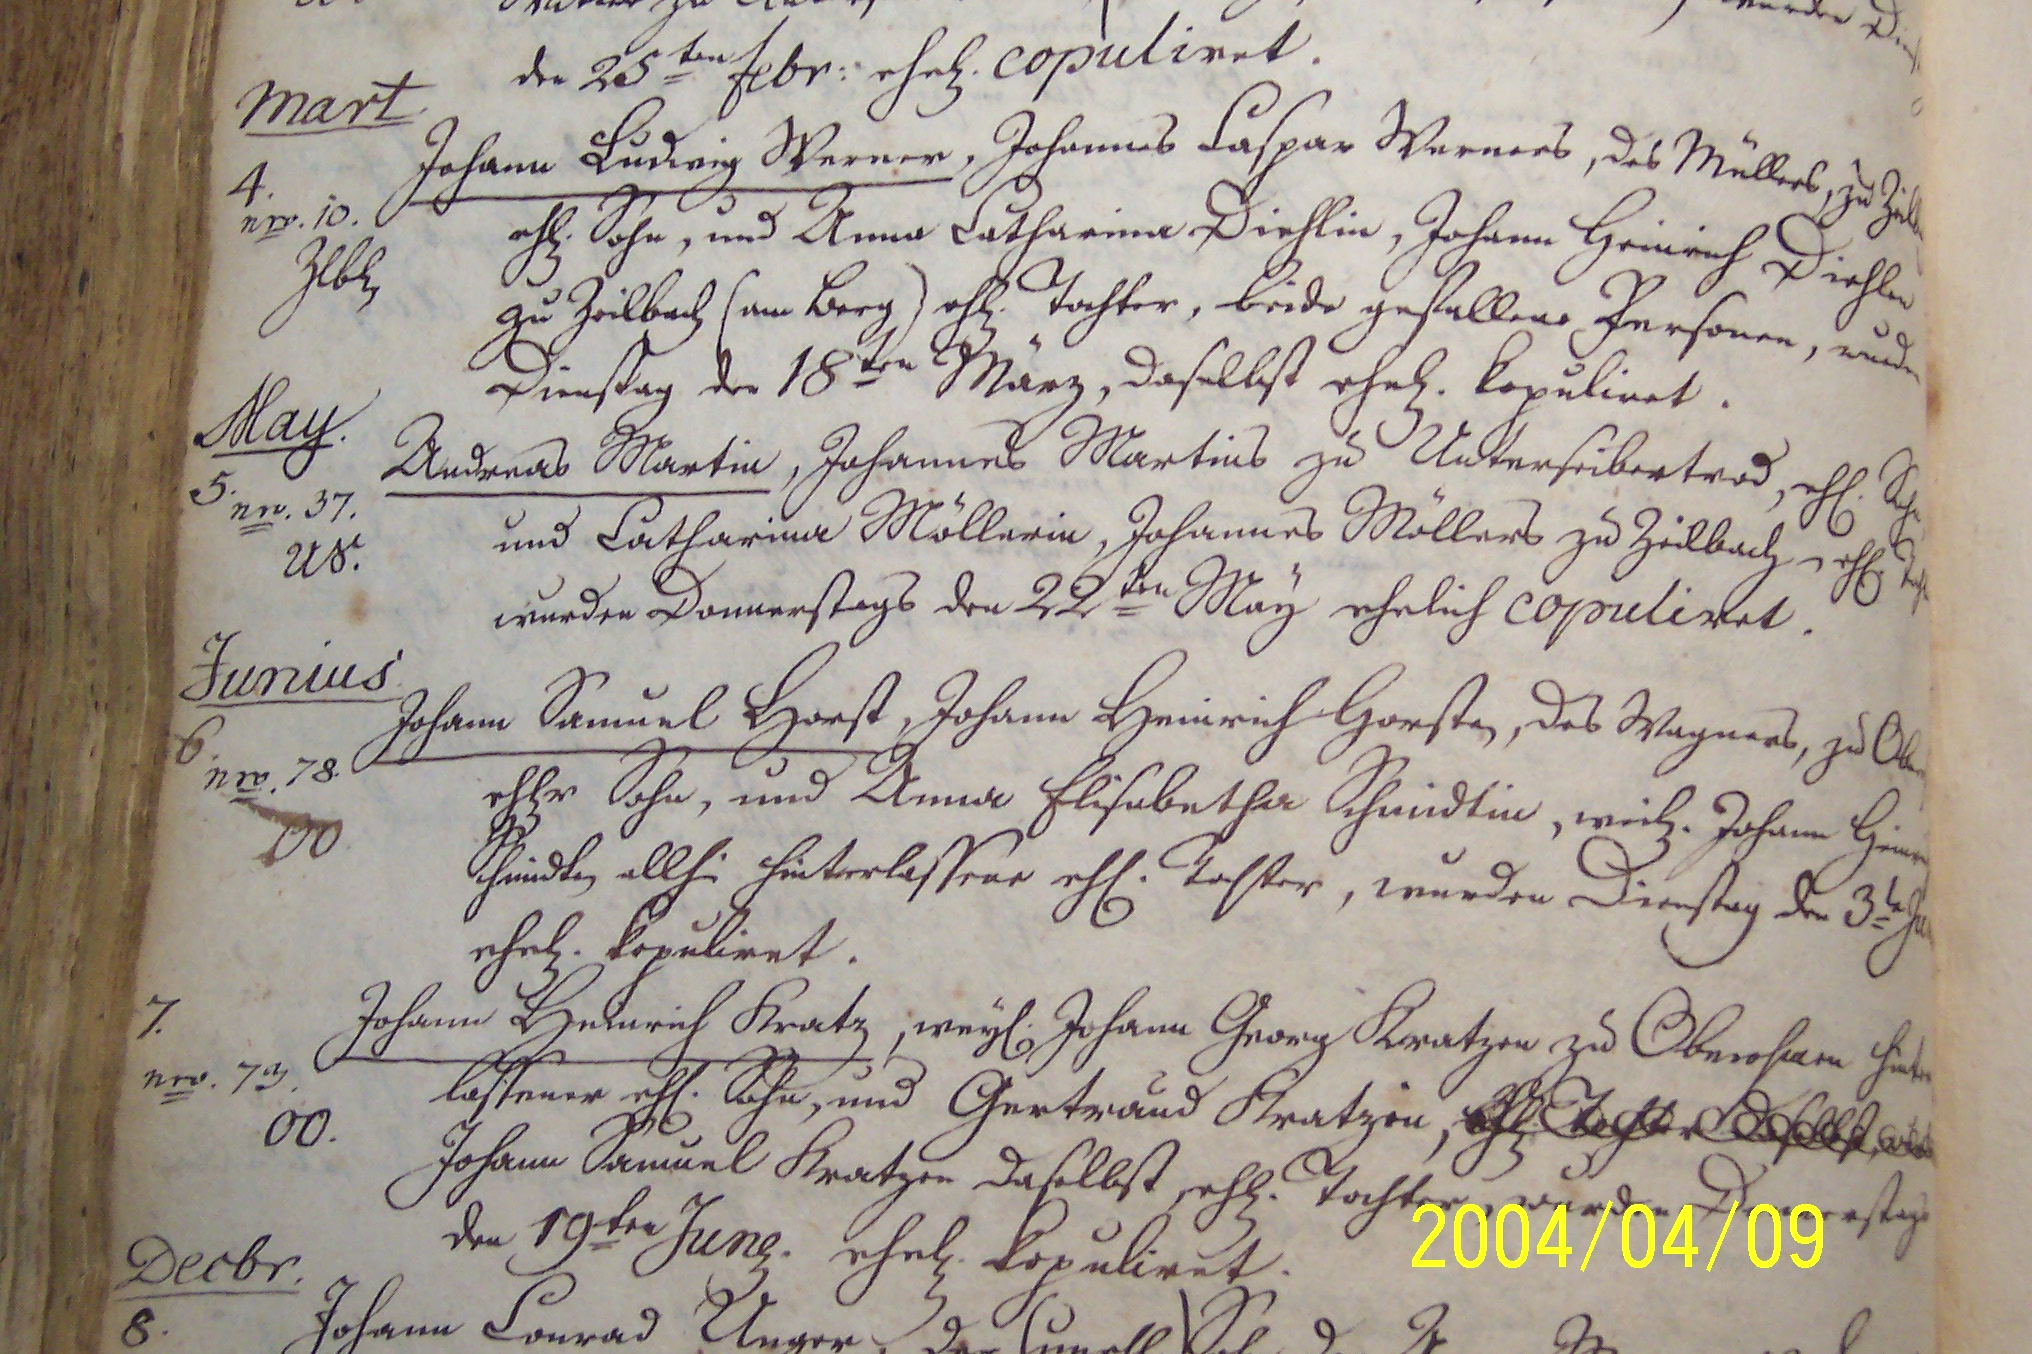 wurden
den 25ten febr: ehel. copuliret.
Mart
4. Johann Ludwig Werner, Johannes Caspar Werners, des Müllers, zu
nro. 10. ehl. Sohn, und Anna Catharina Diehlin, Johann Heinrich Diehlen
Zlb. zu Zeilbach (am Berg) ehl. Tochter, beide gefallene Personen, wurden
Dienstag den 18ten März, daselbst ehel. kopuliret.
May.
5. Andreas Martin, Johannes Martins zu Unterseibertrod, ehl. Sohn
nro. 37. und Catharina Möllerin, Johannes Möllers zu Zeilbach, ehl.
US. wurden Donnerstags den 22ten May ehelich copuliret.
Junius
6. Johann Samuel Horst, Johann Heinrich Horsten, des Wagners, zu
nro. 78. ehlr Sohn, und Anna Elisabetha Schmidtin, weil. Johann
OO Schmidten allhie hinterlassene ehl. Tochter, wurden Dienstag den 3te
ehel. kopuliret.
7. Johann Heinrich Kratz, weyl. Johann Georg Kratzen zu Oberohmen hinter
nro. 73. lassener ehl. Sohn, und Gertraud Kratzin, ehl. Tochter daselbst,
OO. Johann Samuel Kratzen daselbst, ehl. Tochter, wurden Donnerstags
den 19ten Juny. ehel. kopuliret.
Decbr.
8. Johann Conrad Unger, der
2004/04/09